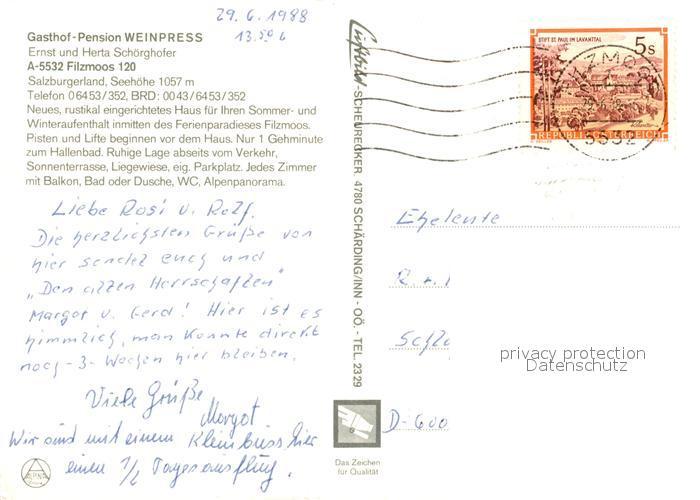 29.6.1988
Gasthof-Pension WEINPRESS
Ernst und Herta Schörghofer
A-5532 Filzmoos 120
Salzburgerland, Seehöhe 1057 m
Telefon 06453/352, BRD: 0043/6453/352
Neues, rustikal eingerichtetes Haus für Ihren Sommer- und
Winteraufenthalt inmitten des Ferienparadieses Filzmoos.
Pisten und Lifte beginnen vor dem Haus. Nur 1 Gehminute
zum Hallenbad. Ruhige Lage abseits vom Verkehr,
Sonnenterrasse, Liegewiese, eig. Parkplatz. Jedes Zimmer
mit Balkon, Bad oder Dusche, WC, Alpenpanorama.
Liebe Rosi u. Rolf.
Die herzlichsten Grüße von
hier sendet euch und
„Den alten Herrschaften"
Margot u. Gerd! Hier ist es
himmlich, man könnte direkt
noch -3- Wochen hier bleiben.
Viele Grüße
Margot
Wir sind mit einem Kleinbuss hier
einen 1/2 Tagesausflug.
Luftbild-SCHEURECKER, 4780 SCHÄRDING/INN - OÖ. - TEL. 2329
Das Zeichen
für Qualität
STIFT ST. PAUL IM LAVANTTAL
5s
REPUBLIK ÖSTERREICH
FILZMOOS
5532
Eheleute
D-600
privacy protection
Datenschutz